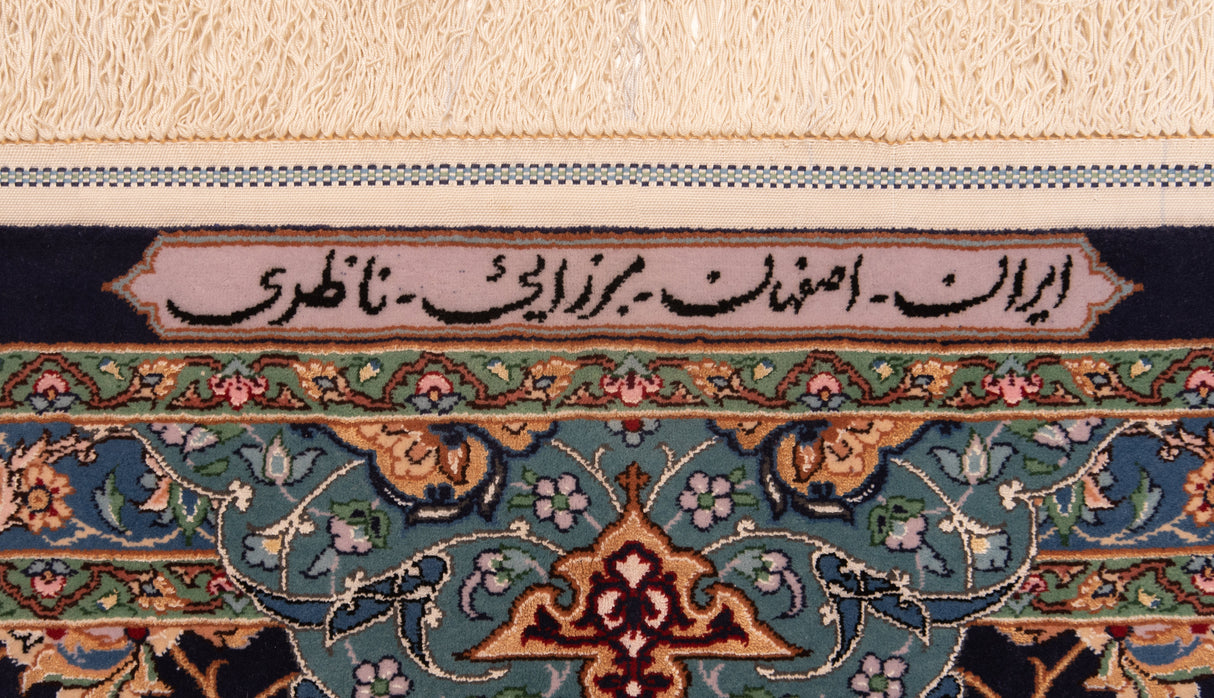 ایران - اصفهان - میرزایئ - ناظری